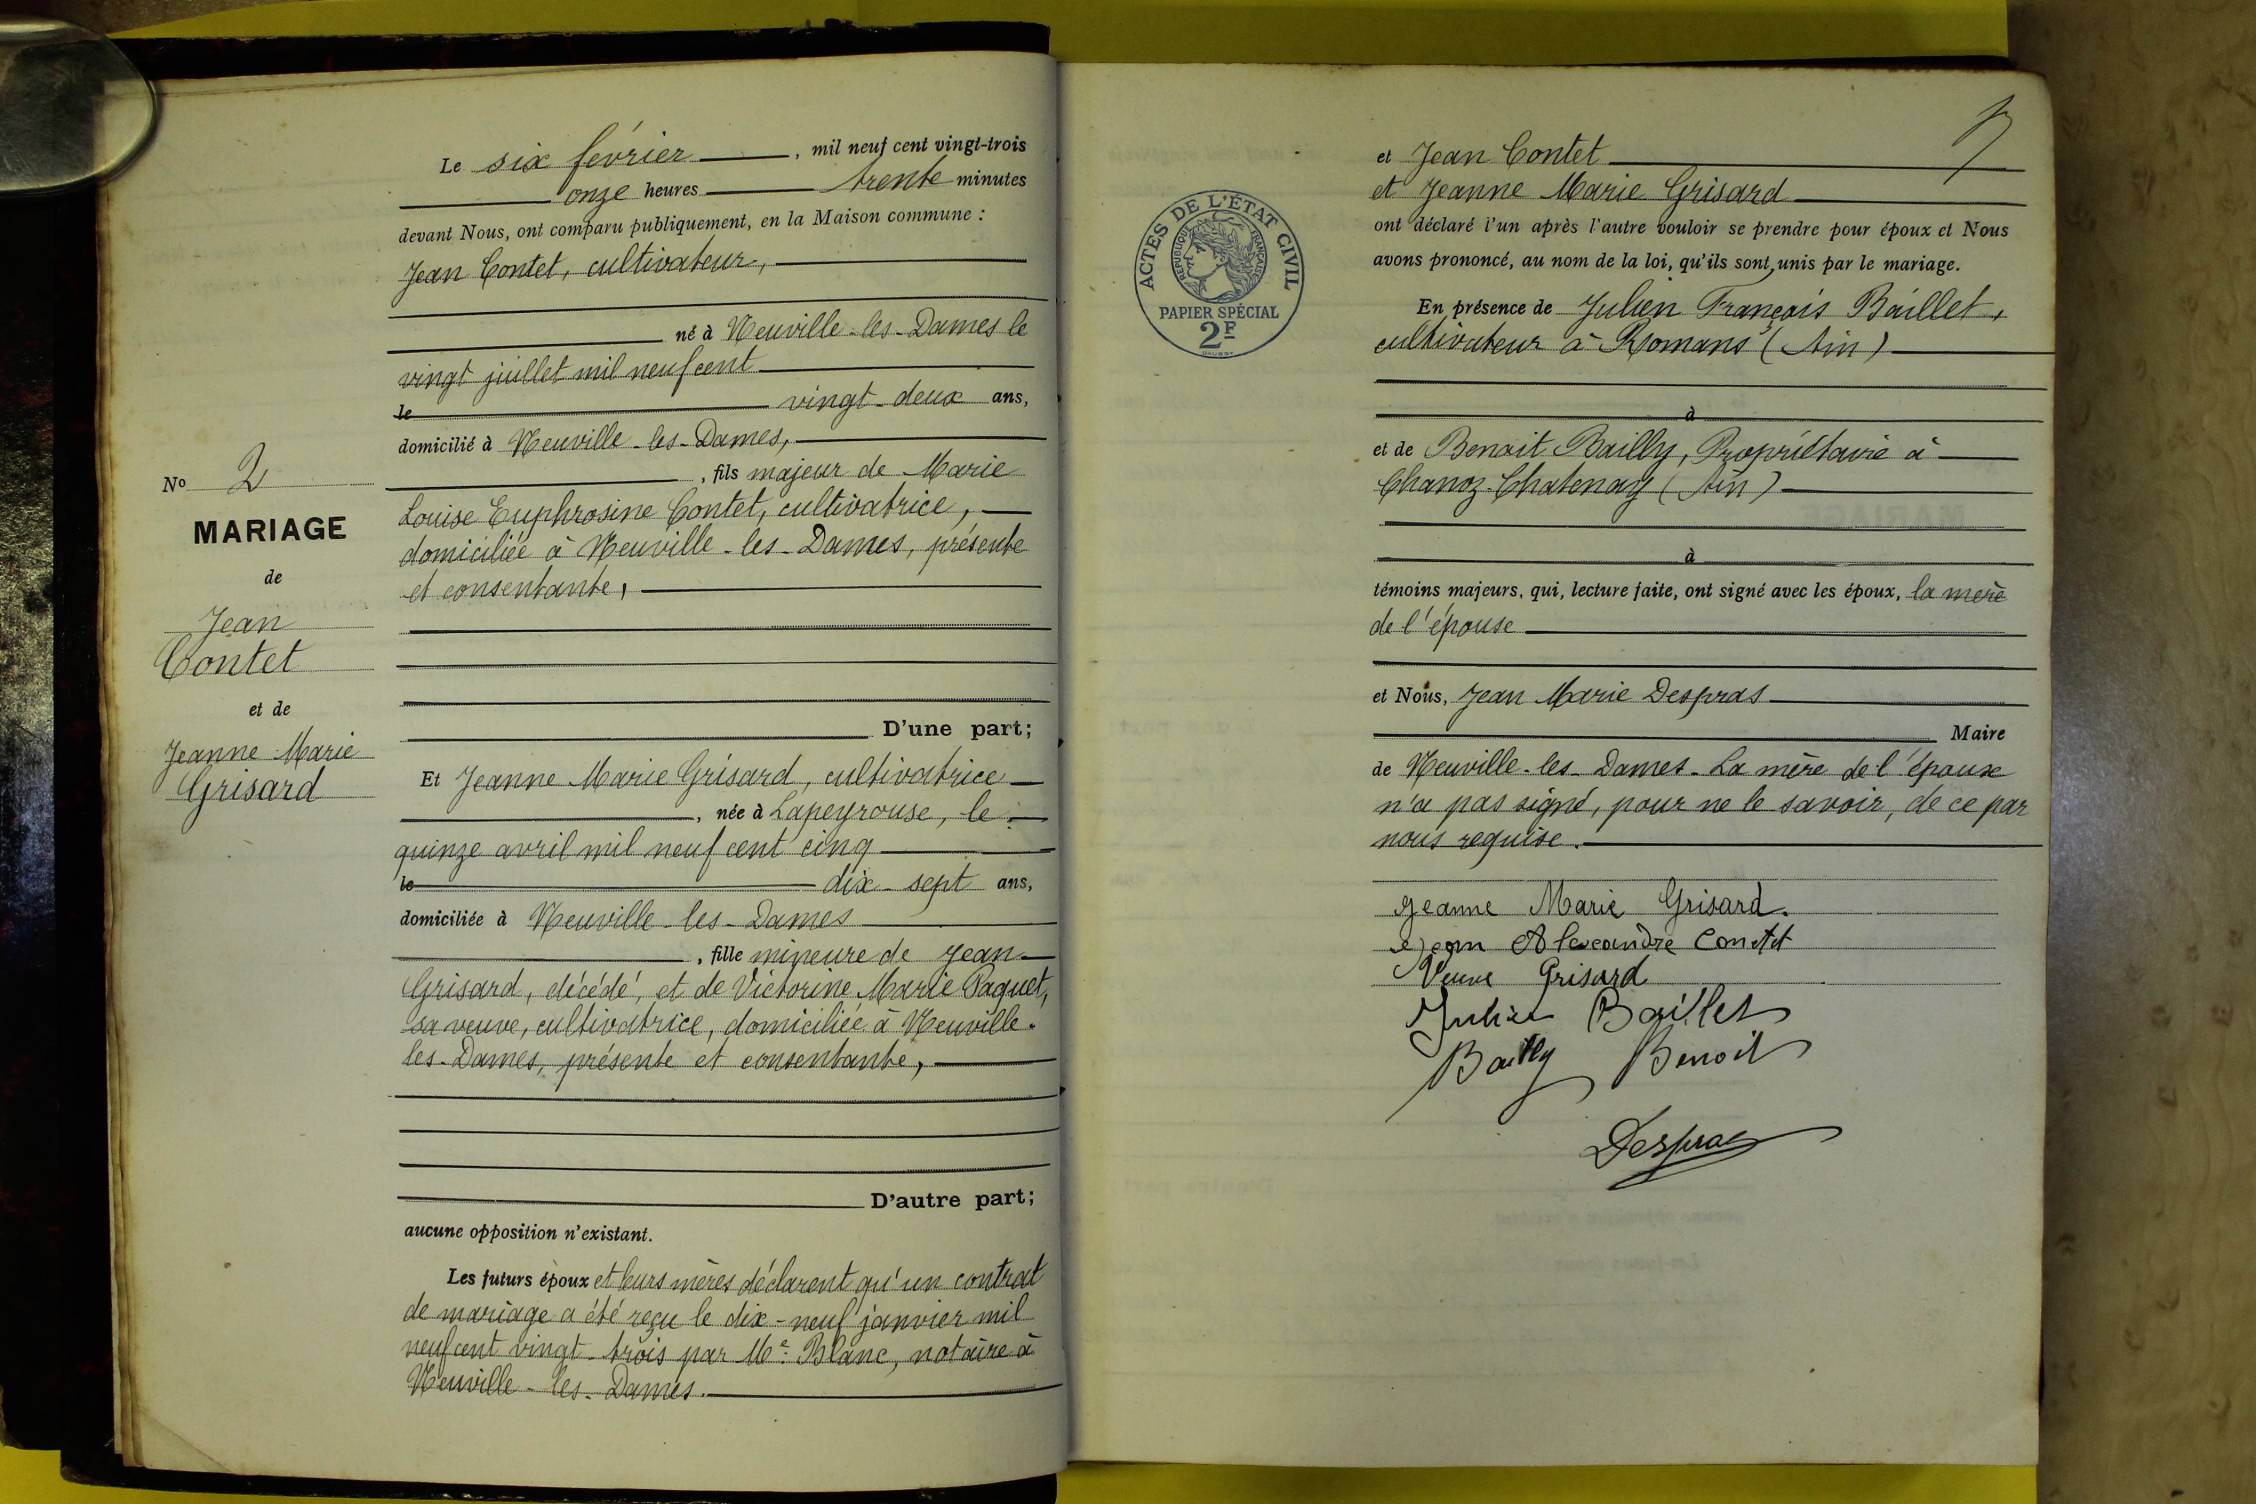 Le six février, mil neuf cent vingt-trois
onze heures trente minutes
devant Nous, ont comparu publiquement, en la Maison commune :
Jean Contet, cultivateur,
né à Neuville-les-Dames le
vingt juillet mil neuf cent
le vingt-deux ans,
domicilié à Neuville-les-Dames,
, fils majeur de Marie
Louise Euphrosine Contet, cultivatrice,
domiciliée à Neuville-les-Dames, présente
et consentante,
D'une part;
Et Jeanne Marie Grisard, cultivatrice
, née à Lapeyrouse, le
quinze avril mil neuf cent cinq
le dix-sept ans,
domiciliée à Neuville-les-Dames
, fille mineure de Jean
Grisard, décédé, et de Victorine Marie Paquet,
sa veuve, cultivatrice, domiciliée à Neuville-
les-Dames, présente et consentante,
D'autre part;
aucune opposition n'existant.
Les futurs époux et leurs mères déclarent qu'un contrat
de mariage a été reçu le dix-neuf janvier mil
neuf cent vingt-trois par Me Blanc, notaire à
Neuville-les-Dames.
No 2
MARIAGE
de
Jean
Contet
et de
Jeanne Marie
Grisard
ACTES DE L'ÉTAT CIVIL
RÉPUBLIQUE FRANÇAISE
PAPIER SPÉCIAL
2F
et Jean Contet
et Jeanne Marie Grisard
ont déclaré l'un après l'autre vouloir se prendre pour époux et Nous
avons prononcé, au nom de la loi, qu'ils sont unis par le mariage.
En présence de Julien François Baillet,
cultivateur à Romans (Ain)
à
et de Benoit Bailly, Propriétaire à
Chanoz-Chatenay (Ain)
à
témoins majeurs, qui, lecture faite, ont signé avec les époux, la mère
de l'épouse
et Nous, Jean Marie Despras
Maire
de Neuville-les-Dames. La mère de l'époux
n'a pas signé, pour ne le savoir, de ce par
nous requise.
Jeanne Marie Grisard.
Jean Alexandre Contet
Veuve Grisard
Julien Baillet
Bailly Benoit
Despras